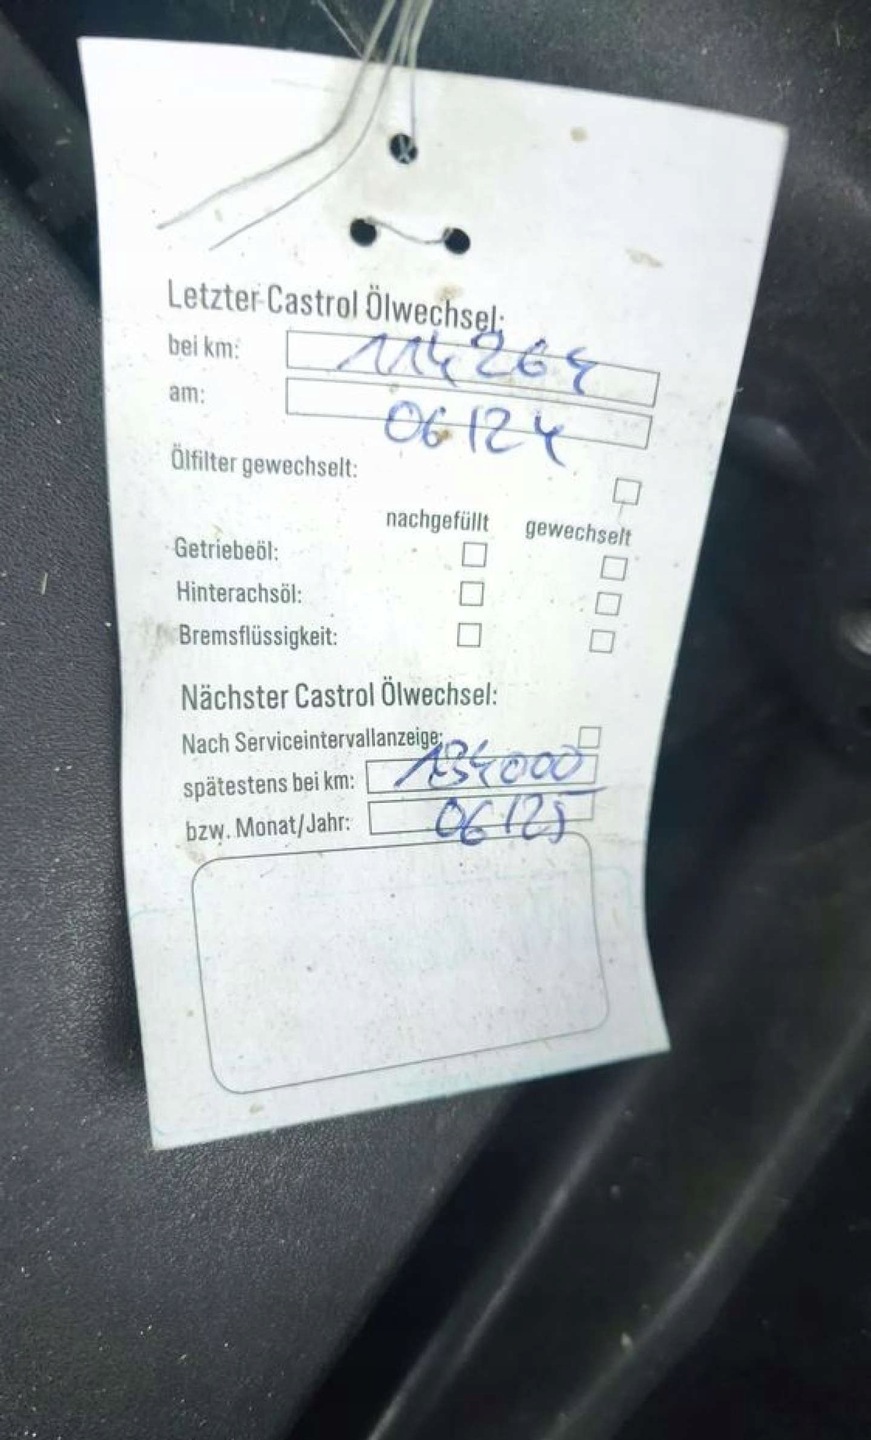 Letzter Castrol Ölwechsel:
bei km: 114264
am: 06/24
Ölfilter gewechselt:
nachgefüllt gewechselt
Getriebeöl:
Hinterachsöl:
Bremsflüssigkeit:
Nächster Castrol Ölwechsel:
Nach Serviceintervallanzeige:
spätestens bei km: 134000
bzw. Monat/Jahr: 06/25